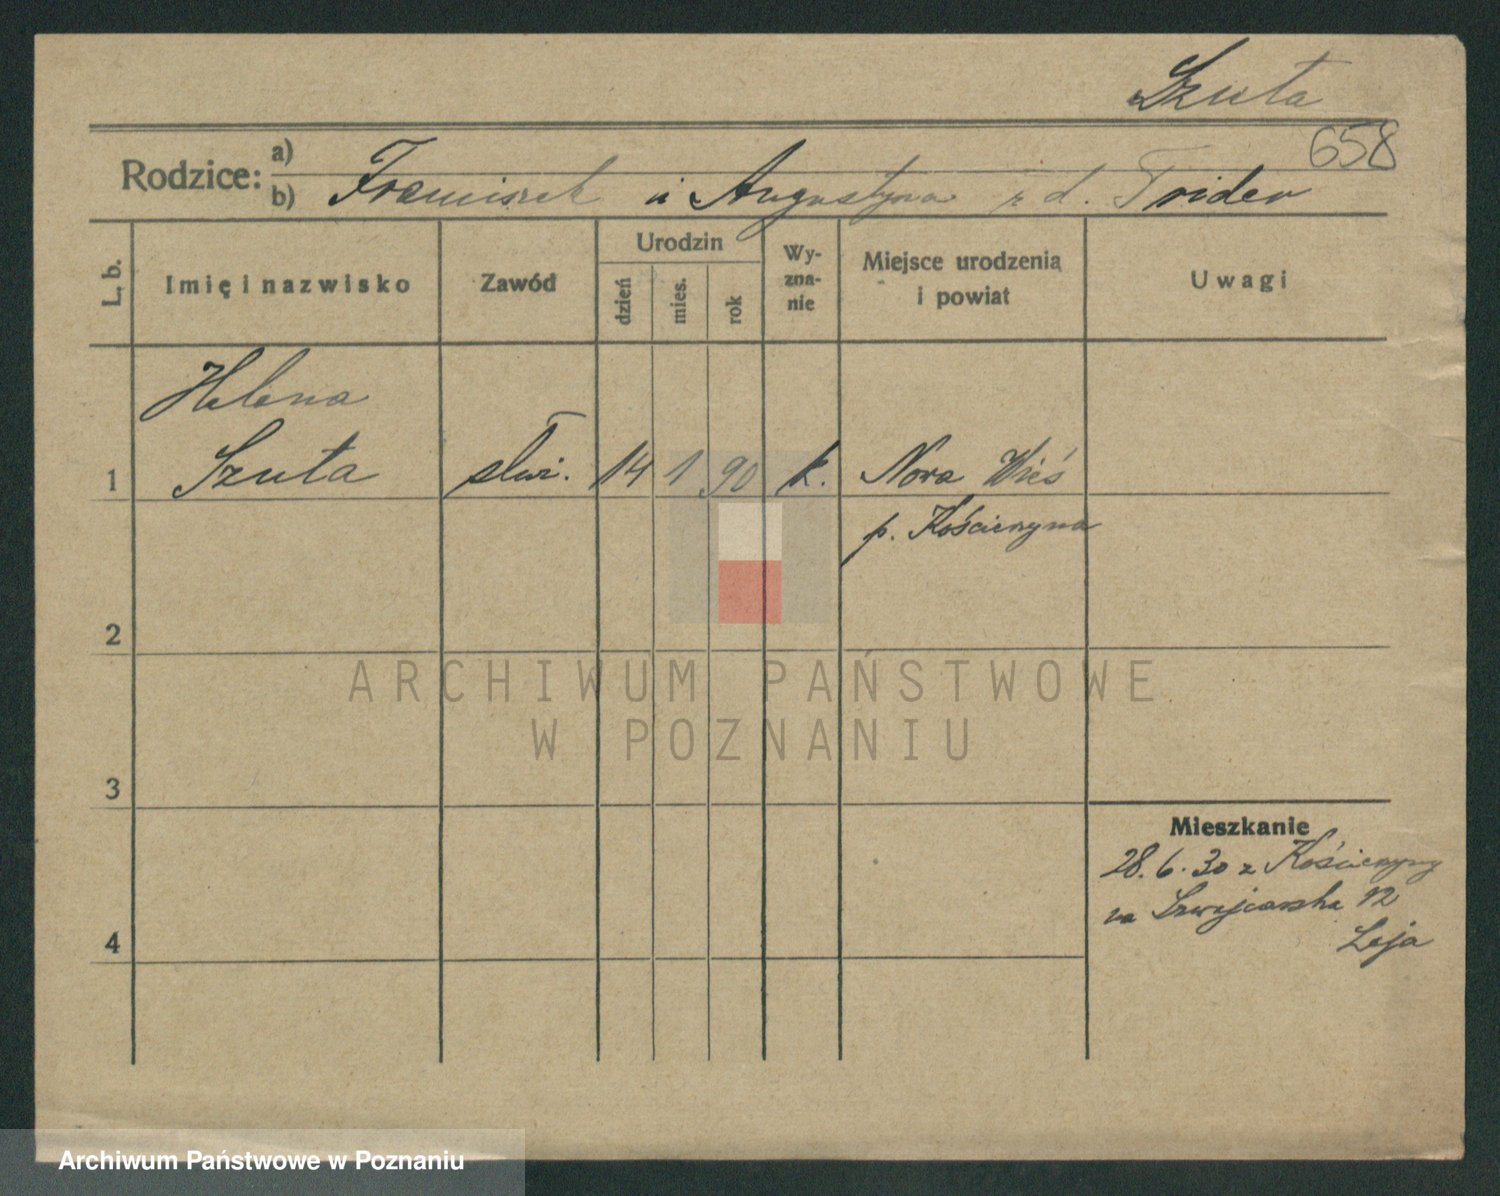 Szuta
658
Rodzice: a)
b) Franciszek i Augustyna z d.
L. b.
Imię i nazwisko
Zawód
Urodzin
dzień
mies.
rok
Wy-
zna-
nie
Miejsce urodzenia
i powiat
Uwagi
Helena
1 Szuta służ. 14 1 90 k. Nowa Wieś
p. Kościerzyna
2
3
4
Mieszkanie
28.6.30 z Kościerzyny
na Szwajcarska 12
ARCHIWUM PAŃSTWOWE
W POZNANIU
Archiwum Państwowe w Poznaniu